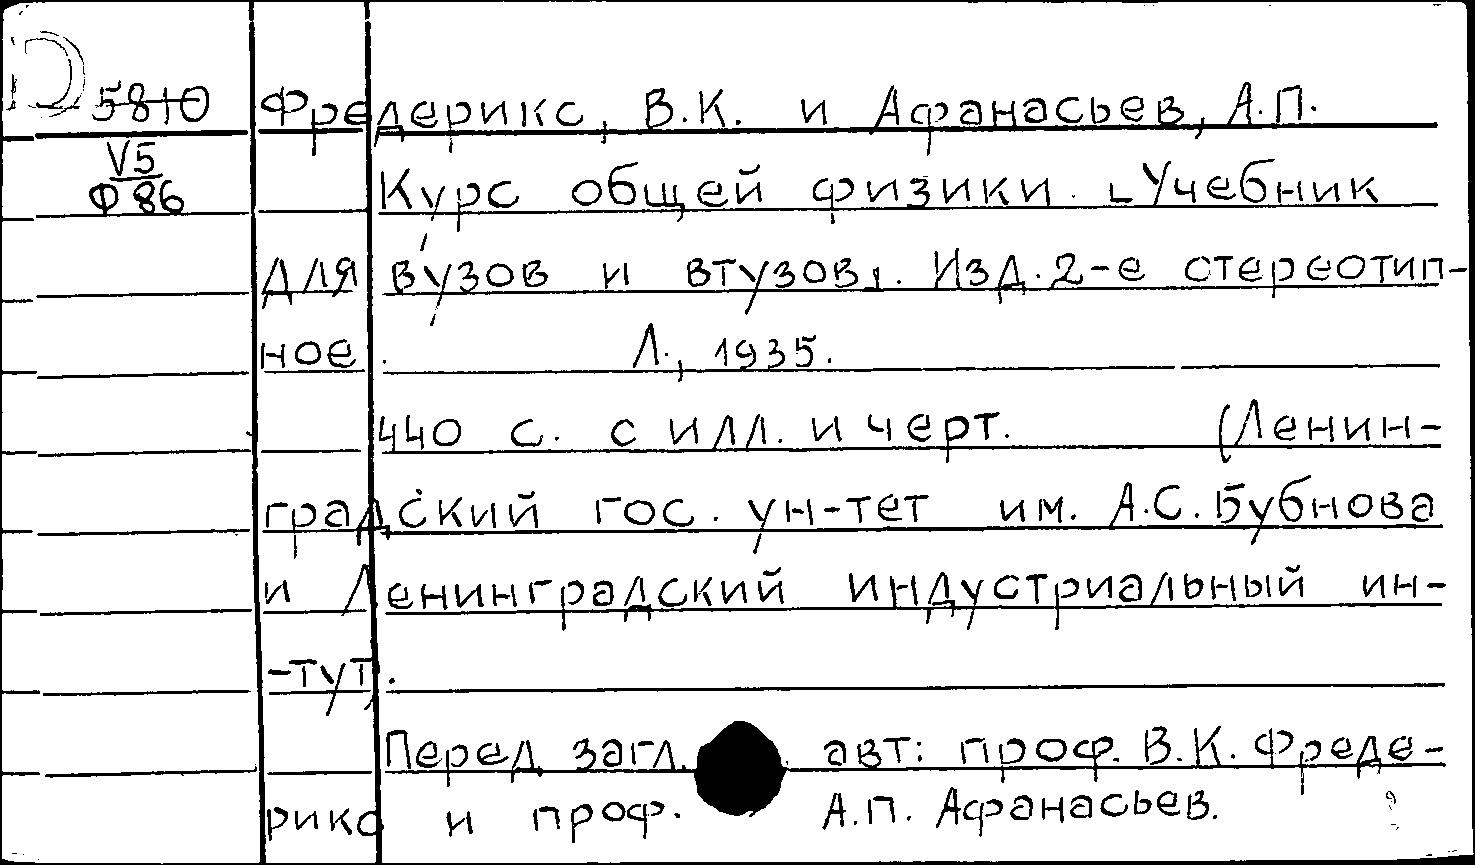 5810 Фредерикс, В.К. и Афанасьев, А.П.
V5
Ф86
Курс общей физики. [Учебник
для вузов и втузов]. Изд. 2-е стереотип-
ное. Л., 1935.
440 с. с илл. и черт. (Ленин-
градский гос. ун-тет им. А.С. Бубнова
и Ленинградский индустриальный ин-
-тут).
Перед загл. авт: проф. В.К. Фреде-
рикс и проф. А.П. Афанасьев.